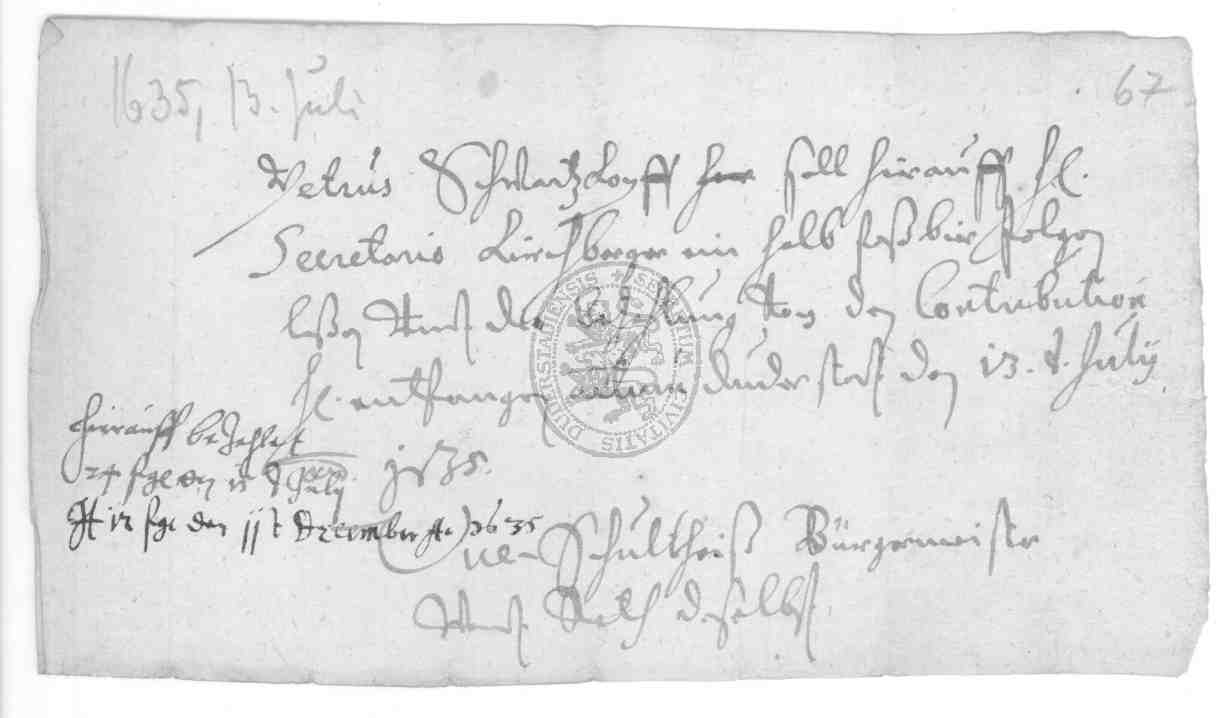 1635, 13. Juli
67
Petrus Schwartzkopff soll hierauff H.
Secretario Kirchberger ein halb faß bier folgen
laßen undt die bezahlung von den Contribution
H. entfangen Duderstadt den 13. t. July
1635.
Hierauff bezahlet
24 fgl den 15 July
It 12 fgl den 11 t Xcember Ao 1635
Schultheiß Bürgermeister
undt Rath daselbst
SECRETUM CIVITATIS DUDERSTADIENSIS